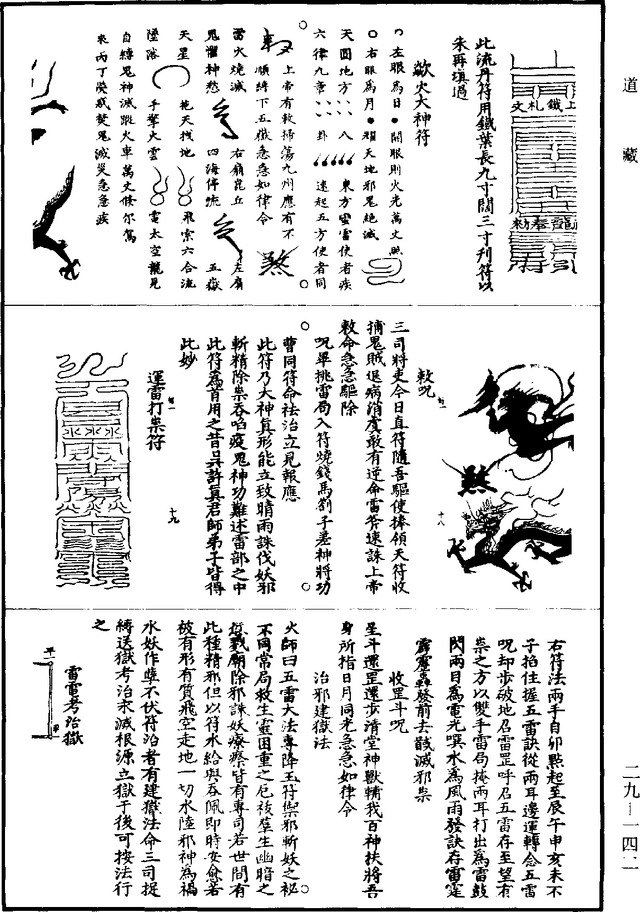 道藏
上鐵札文
此流丹符用鐵葉長九寸闊三寸刊符以
朱再填過
歘火大神符
左眼為日
開眼則火光萬丈
右眼為月
頼天地邪鬼絶滅
天圓地方
八
東方蠻雷使者疾
六律九章
卦
速起五方使者同
上帝有敕掃蕩九州應有不
順縛下五嶽急急如律令
煞
雷火燒滅
右扇崑丘
左扇
鬼懼神愁
四海停流
五嶽
天星
拖天找地
飛索六合流
墜落
手擎火雲
電太空龍見
自縛鬼神滅蹤火車萬丈倏尔駕
來丙丁癸或焚鬼滅災急急疾
煞
十八
敕呪
三司將吏今日直符隨吾驅使捧領天符收
捕鬼賊退病消虔敢有逆命雷斧速誅上帝
敕命急急驅除
呪畢挑雷局入符燒錢馬劄子差神將功
曹同符命祛治立見報應
此符乃大神真形能立致晴雨誅伐妖邪
斬精除祟吞啗疫鬼神功難述雷部之中
此符為首用之昔吳許真君師弟子皆得
此妙
十九
運雷打祟符
右符法兩手自卯點起至辰午申亥未不
子掐住握五雷訣從兩耳邊運轉念五雷
呪却步破地召雷罡呼召五雷存至望有
祟之方以雙手雷局掩兩耳打出為雷鼓
閃兩目為電光噀水為風雨發訣存雷霆
霹靂轟發前去戮滅邪祟
收罡斗呪
星斗還罡還步清堂神獸輔我百神扶將吾
身所指日月同光急急如律令
治邪建獄法
火師曰五雷大法專降玉符禦邪斬妖之祕
不同常局救生靈困重之厄祓羣生幽暗之
愆戮廟除邪誅妖療瘵皆有專司若世間有
此種精邪但以符水給與吞佩即時安愈若
被有形有質飛空走地一切水陸邪神為禍
水妖作孽不伏符治者有建獄法命三司捉
縛送獄考治永滅根源立獄于後可按法行
之
雷電考治獄
二九—一四二